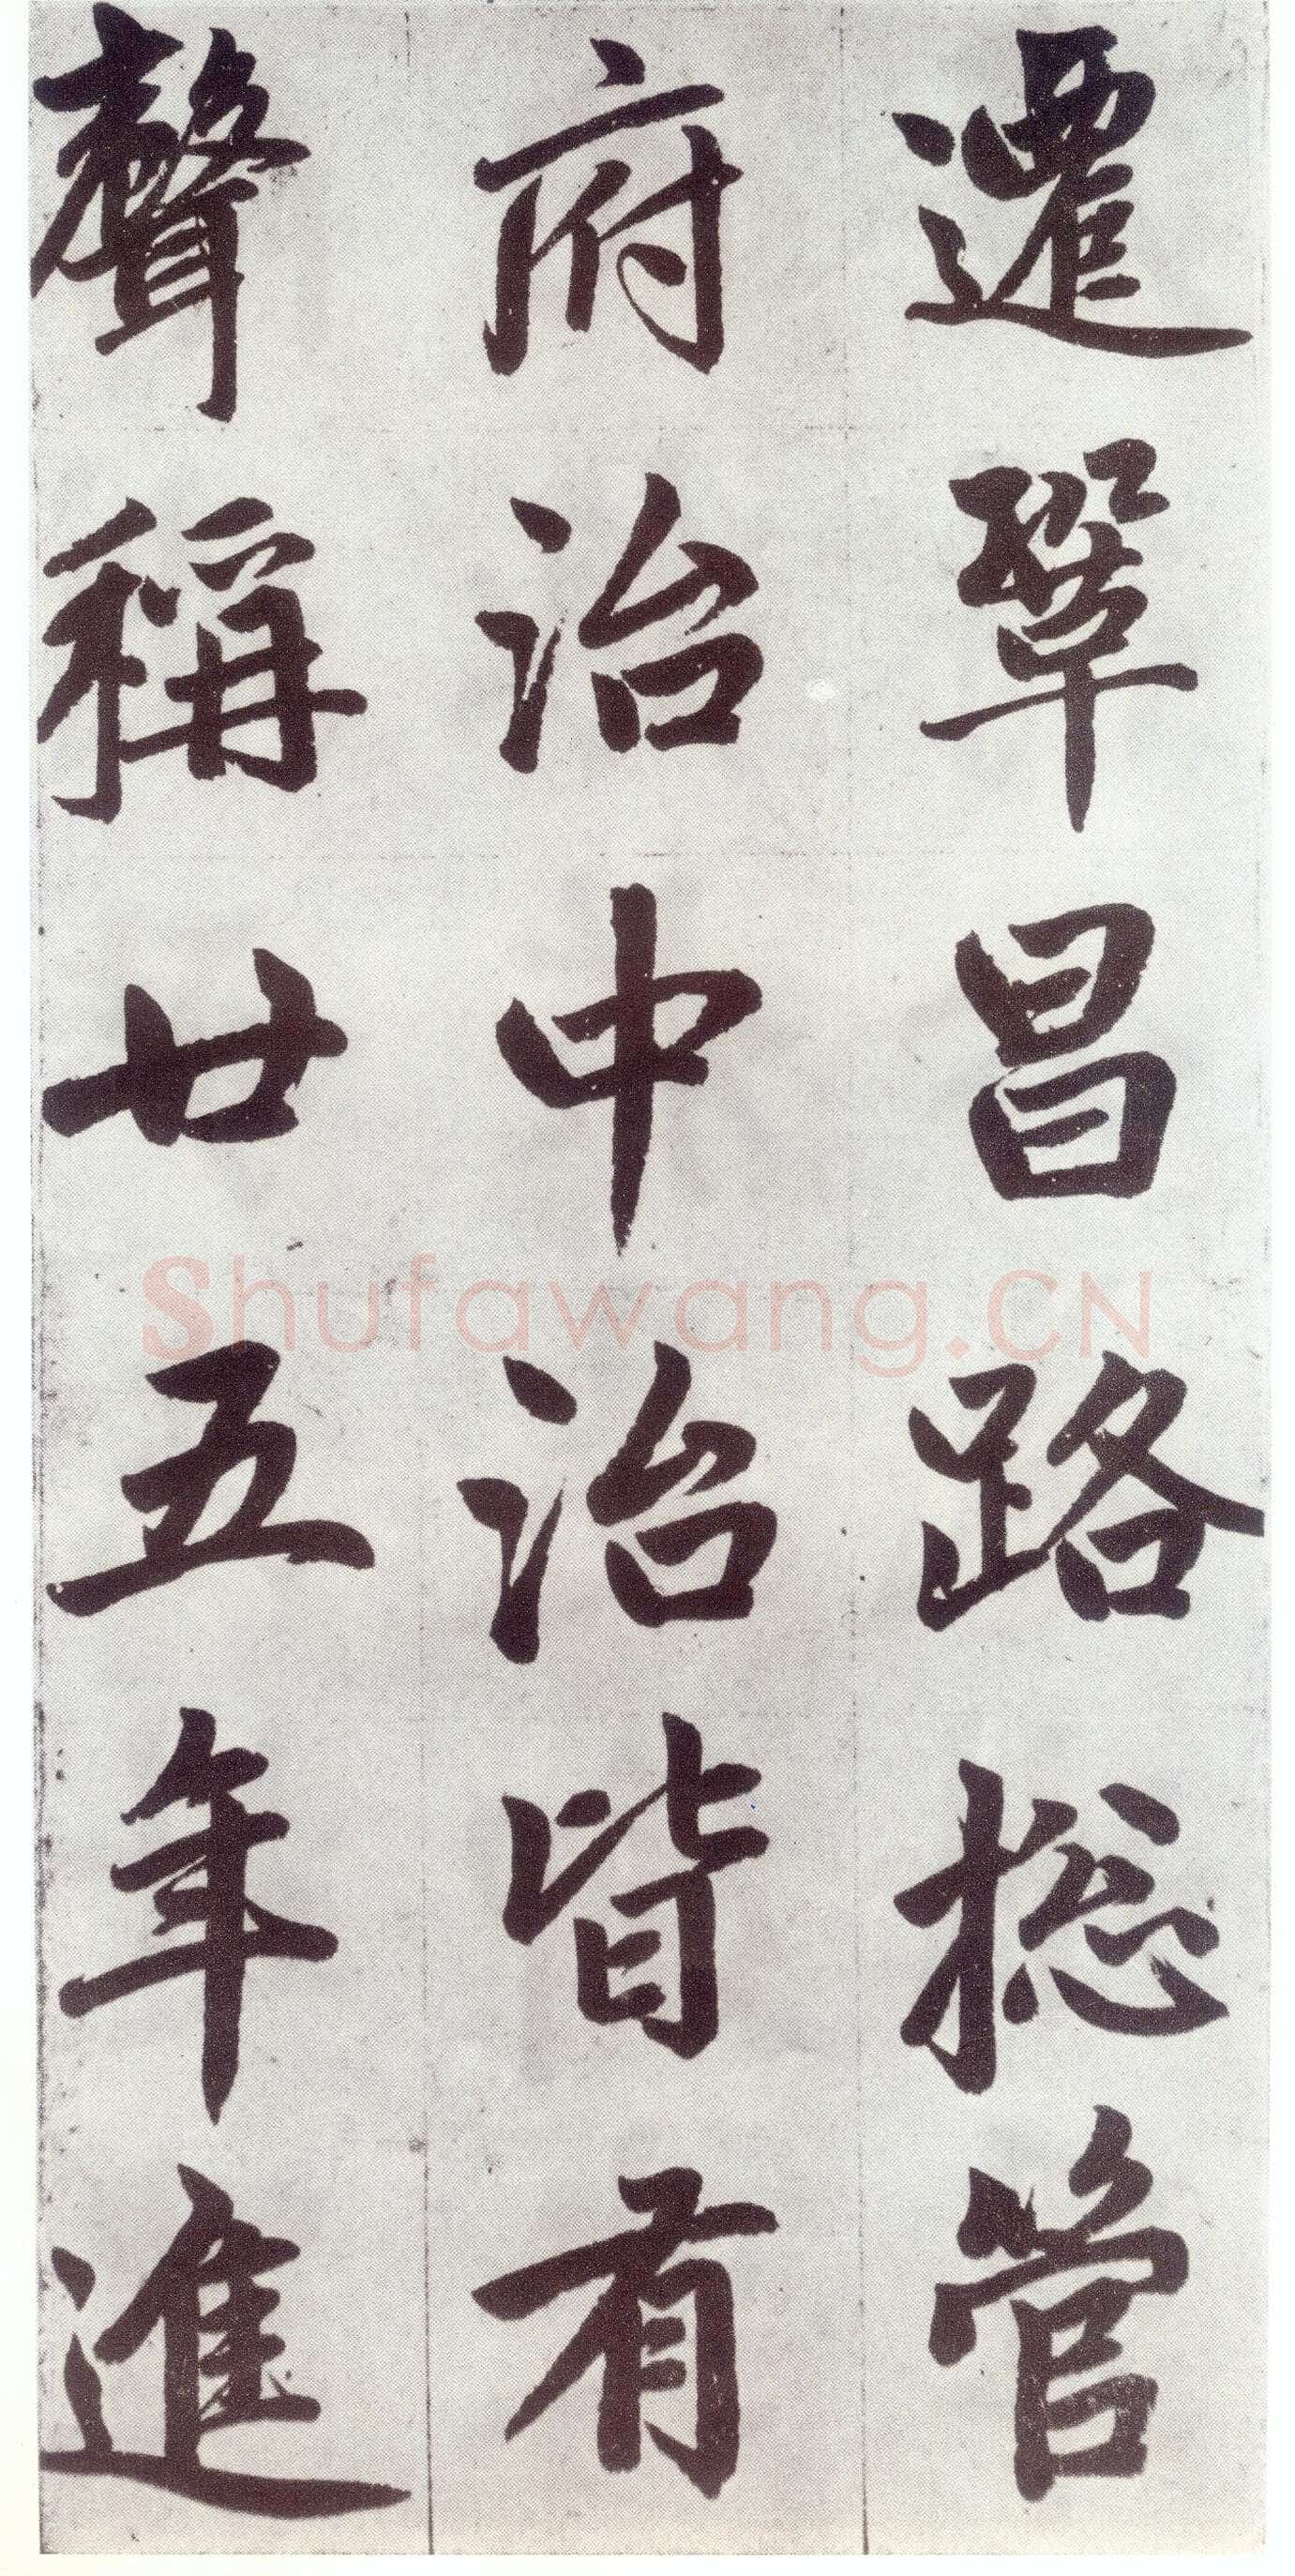 遷鞏昌路摠管
府治中治皆有
聲稱廿五年進
Shufawang.CN